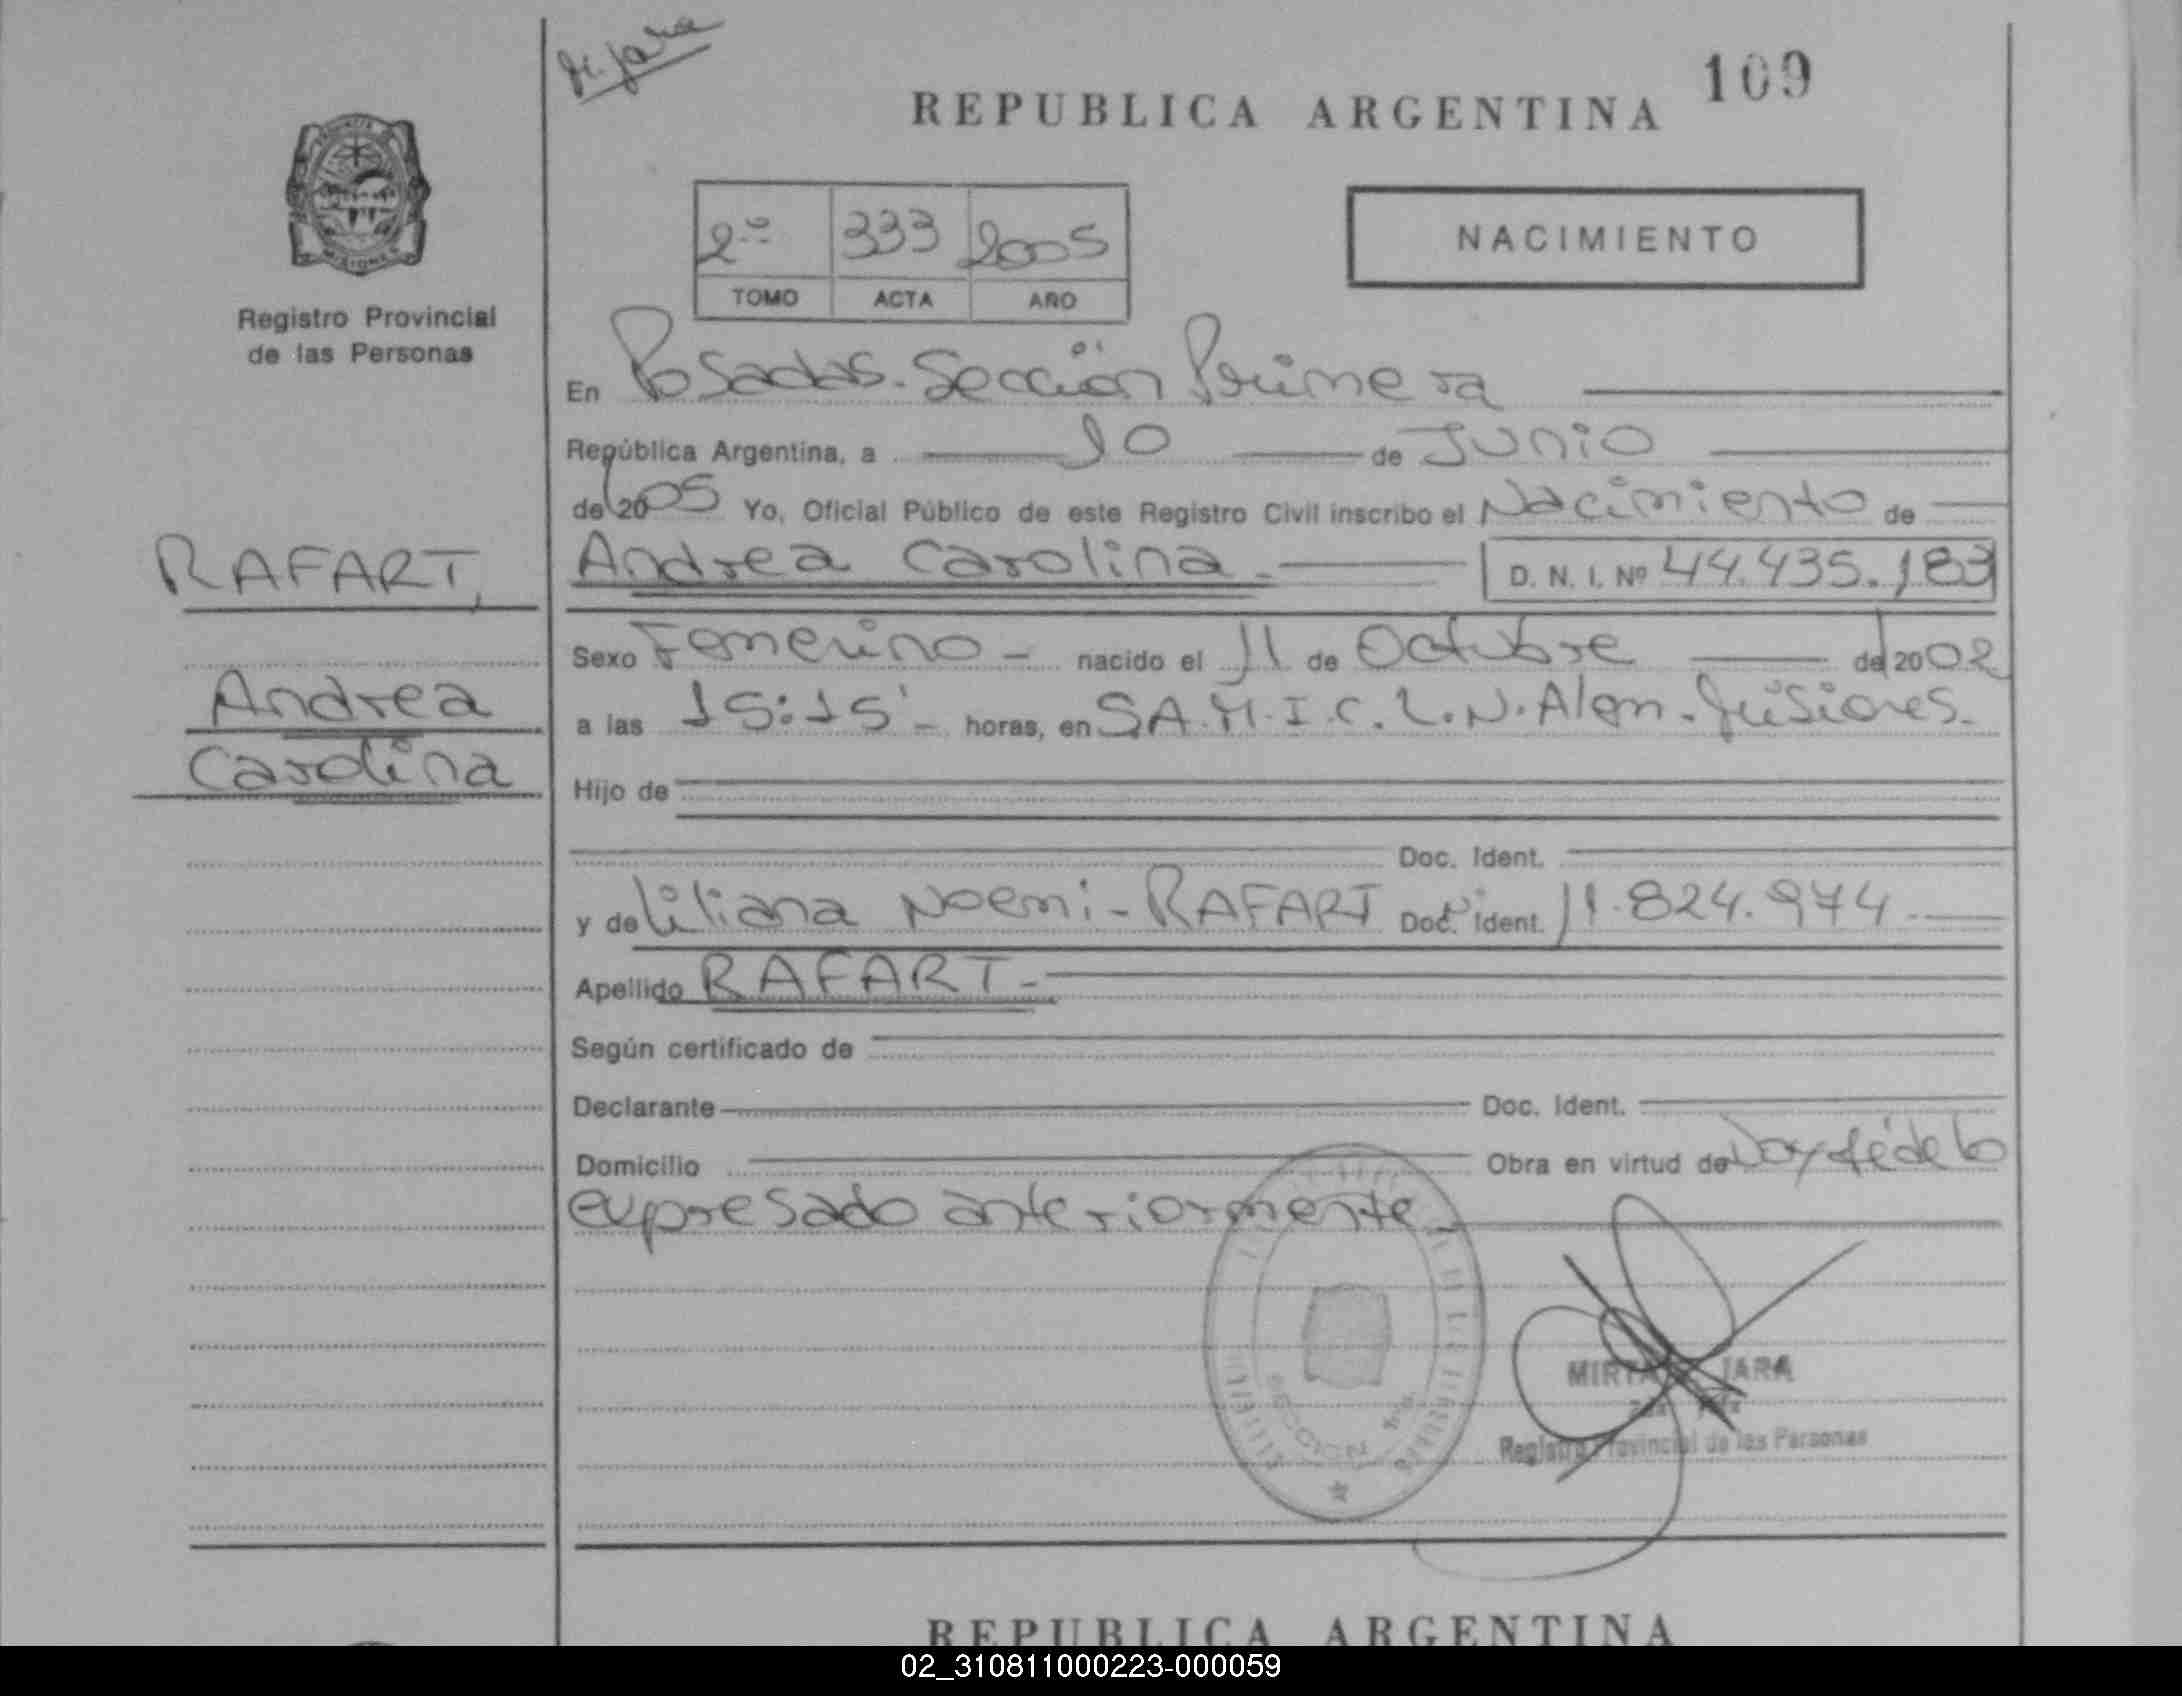 Mi. Jara
REPUBLICA ARGENTINA 109
2º 333 2005
TOMO ACTA AÑO
NACIMIENTO
Registro Provincial
de las Personas
En Posadas. Sección Primera
República Argentina, a 10 de Junio
de 2005 Yo, Oficial Público de este Registro Civil inscribo el Nacimiento de
RAFART,
Andrea Carolina
Andrea Carolina. D. N. I. Nº 44.435.183
Sexo Femenino - nacido el 11 de Octubre de 2002
a las 15:15' - horas, en S.A.M.I.C. L.N. Alem. Misiones.
Hijo de
Doc. Ident.
y de Liliana Noemi - RAFART Doc. Ident. 11.824.974.
Apellido RAFART -
Según certificado de
Declarante Doc. Ident.
Domicilio Obra en virtud de Doy fé de lo
expresado anteriormente.
SECCION 1ra.
MIRTA JARA
Registro Provincial de las Personas
REPUBLICA ARGENTINA
02_310811000223-000059